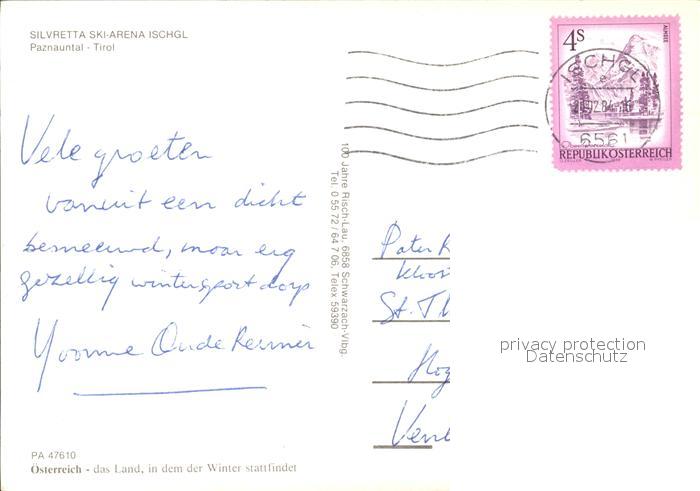 SILVRETTA SKI-ARENA ISCHGL
Paznauntal - Tirol
4S
ALMSEE
ISCHGL
6561
REPUBLIK ÖSTERREICH
Vele groeten
vanuit een dicht
besneeuwd, maar erg
gezellig wintersport dorp
Yvonne Oude
100 Jahre Risch-Lau, 6858 Schwarzach-Vlbg.
Tel. 0 55 72 / 64 7 06, Telex 59390
Pater
Kloos
St. Th
Hog
Venr
privacy protection
Datenschutz
PA 47610
Österreich - das Land, in dem der Winter stattfindet